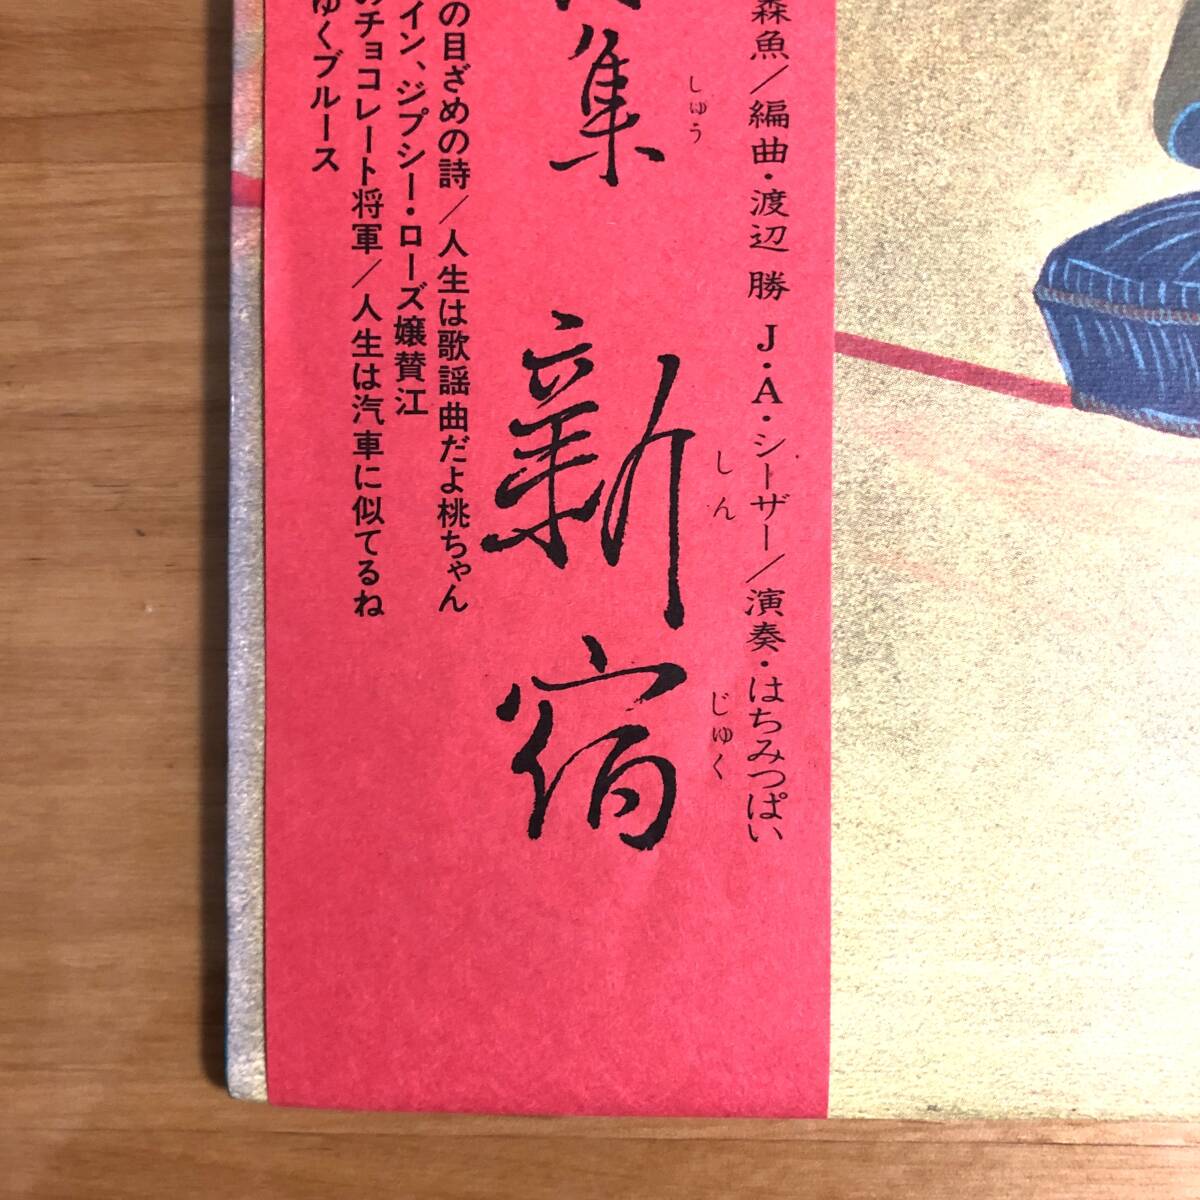 森魚/編曲・渡辺 勝 J・A・シーザー/演奏・はちみつぱい
しゅう しん じゅく
集 新宿
の目ざめの詩/人生は歌謡曲だよ桃ちゃん
イン、ジプシー・ローズ嬢賛江
チョコレート将軍/人生は汽車に似てるね
ゆくブルース